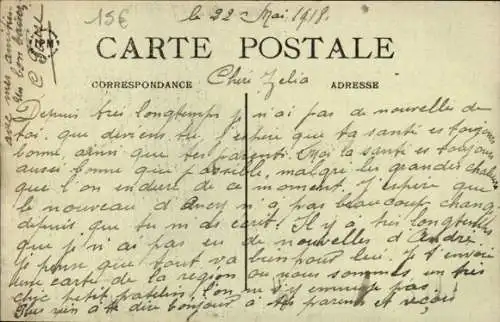 15€
le 22 Mai 1918.
CARTE POSTALE
CORRESPONDANCE
ADRESSE
Chère Zelia
Depuis très longtemps je n'ai pas de nouvelles de
toi, que deviens tu. J'espère que ta santé est toujours
bonne, ainsi que tes parents. Moi la santé est toujours
aussi bonne que possible, malgré les grandes chaleurs
que l'on endure de ce moment. J'espère que
le nouveau d'Avery n'a pas beaucoup changé
depuis que tu m'as écrit. Il y a très longtemps
que je n'ai pas eu de nouvelles d'André
je pense que tout va bien pour lui. Je t'envoie
une carte de la region ou nous sommes, un très
chic petit patelin, l'on ne s'y ennuye pas.
Plus rien à te dire bonjour à tes parents et reçois
avec mes amitiés
un bon baiser